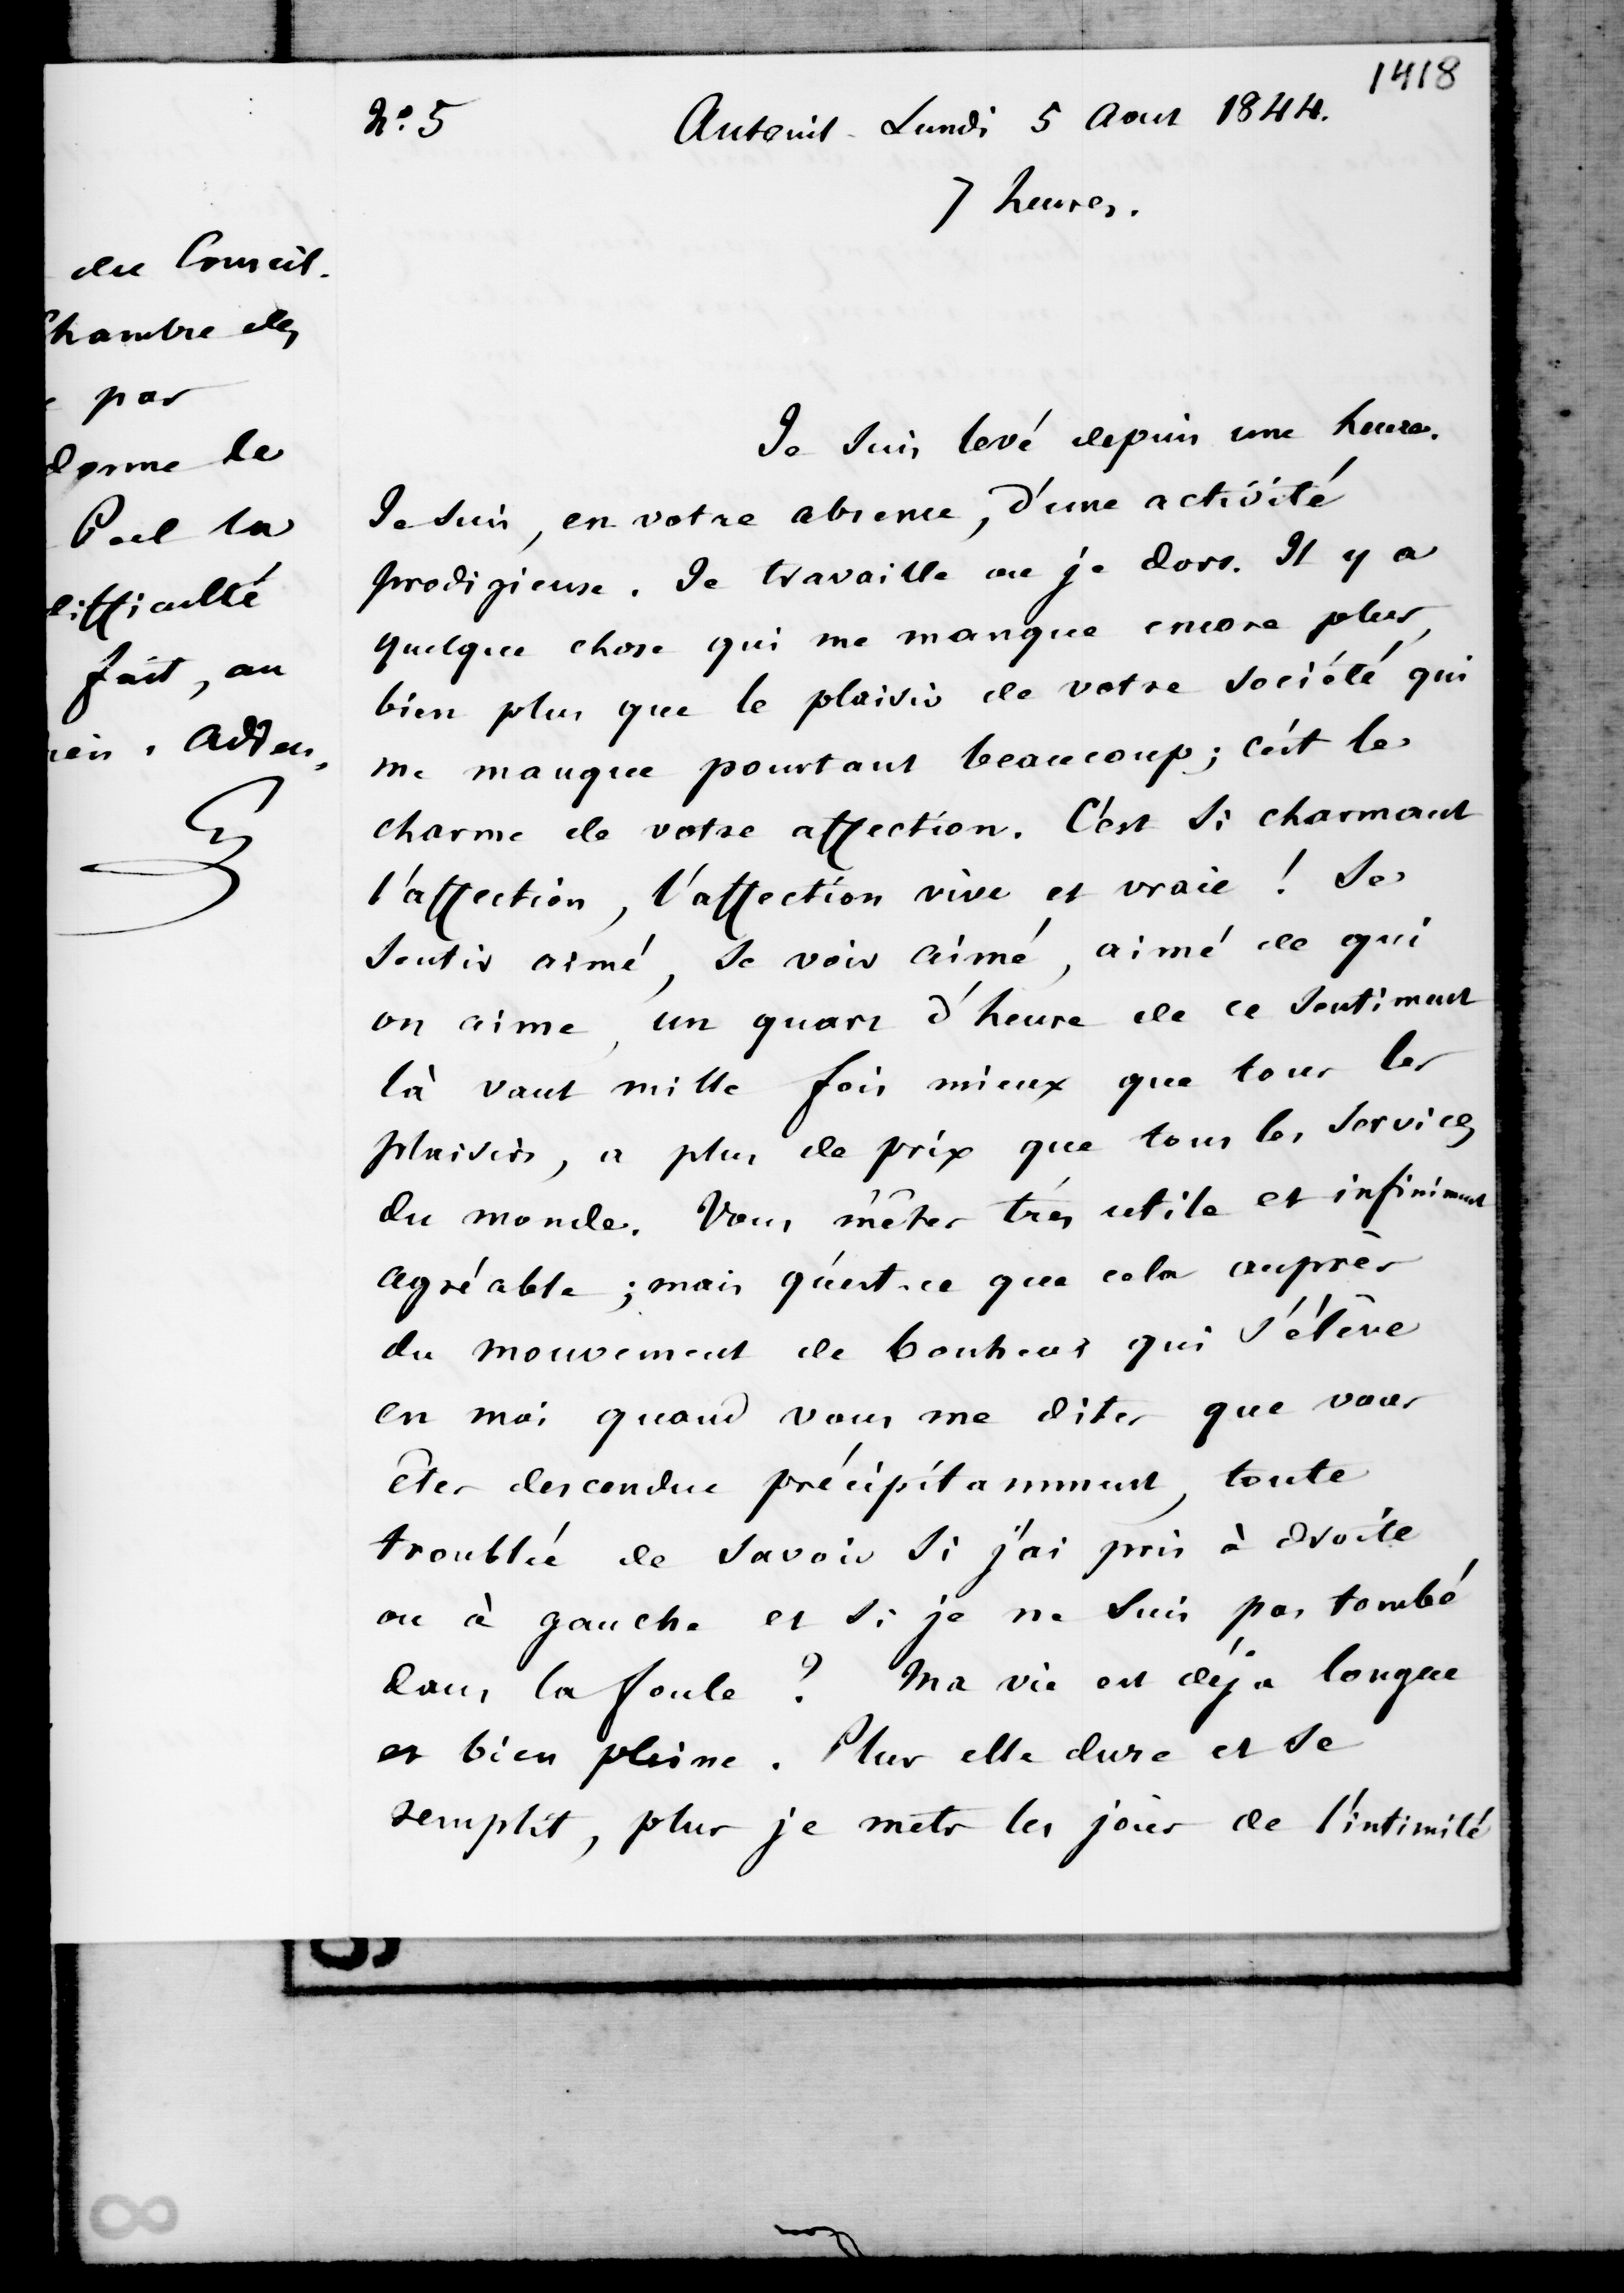 1418
N° 5
Auteuil - Lundi 5 Aout 1844.
7 heures.
du Conseil.
Chambre des
par
donne le
Peel la
difficulté
fait, au
rien. Adieu.
G
Je suis levé depuis une heure.
Je suis, en votre absence, d'une activité
prodigieuse. Je travaille ou je dors. Il y a
quelque chose qui me manque encore plus,
bien plus que le plaisir de votre société qui
me manque pourtant beaucoup; c'est le
charme de votre affection. C'est si charmant
l'affection, l'affection vive et vraie ! Se
sentir aimé, se voir aimé, aimé de qui
on aime, un quart d'heure de ce sentiment
là vaut mille fois mieux que tous les
plaisirs, a plus de prix que tous les services
du monde. Vous m'êtes très utile et infiniment
agréable ; mais qu'est-ce que cela auprès
du mouvement de bonheur qui s'élève
en moi quand vous me dites que vous
êtes descendue précipitamment, toute
troublée de savoir si j'ai pris à droite
ou à gauche et si je ne suis pas tombé
dans la foule ? Ma vie est déja longue
et bien pleine. Plus elle dure et se
remplit, plus je mets les joies de l'intimité
8